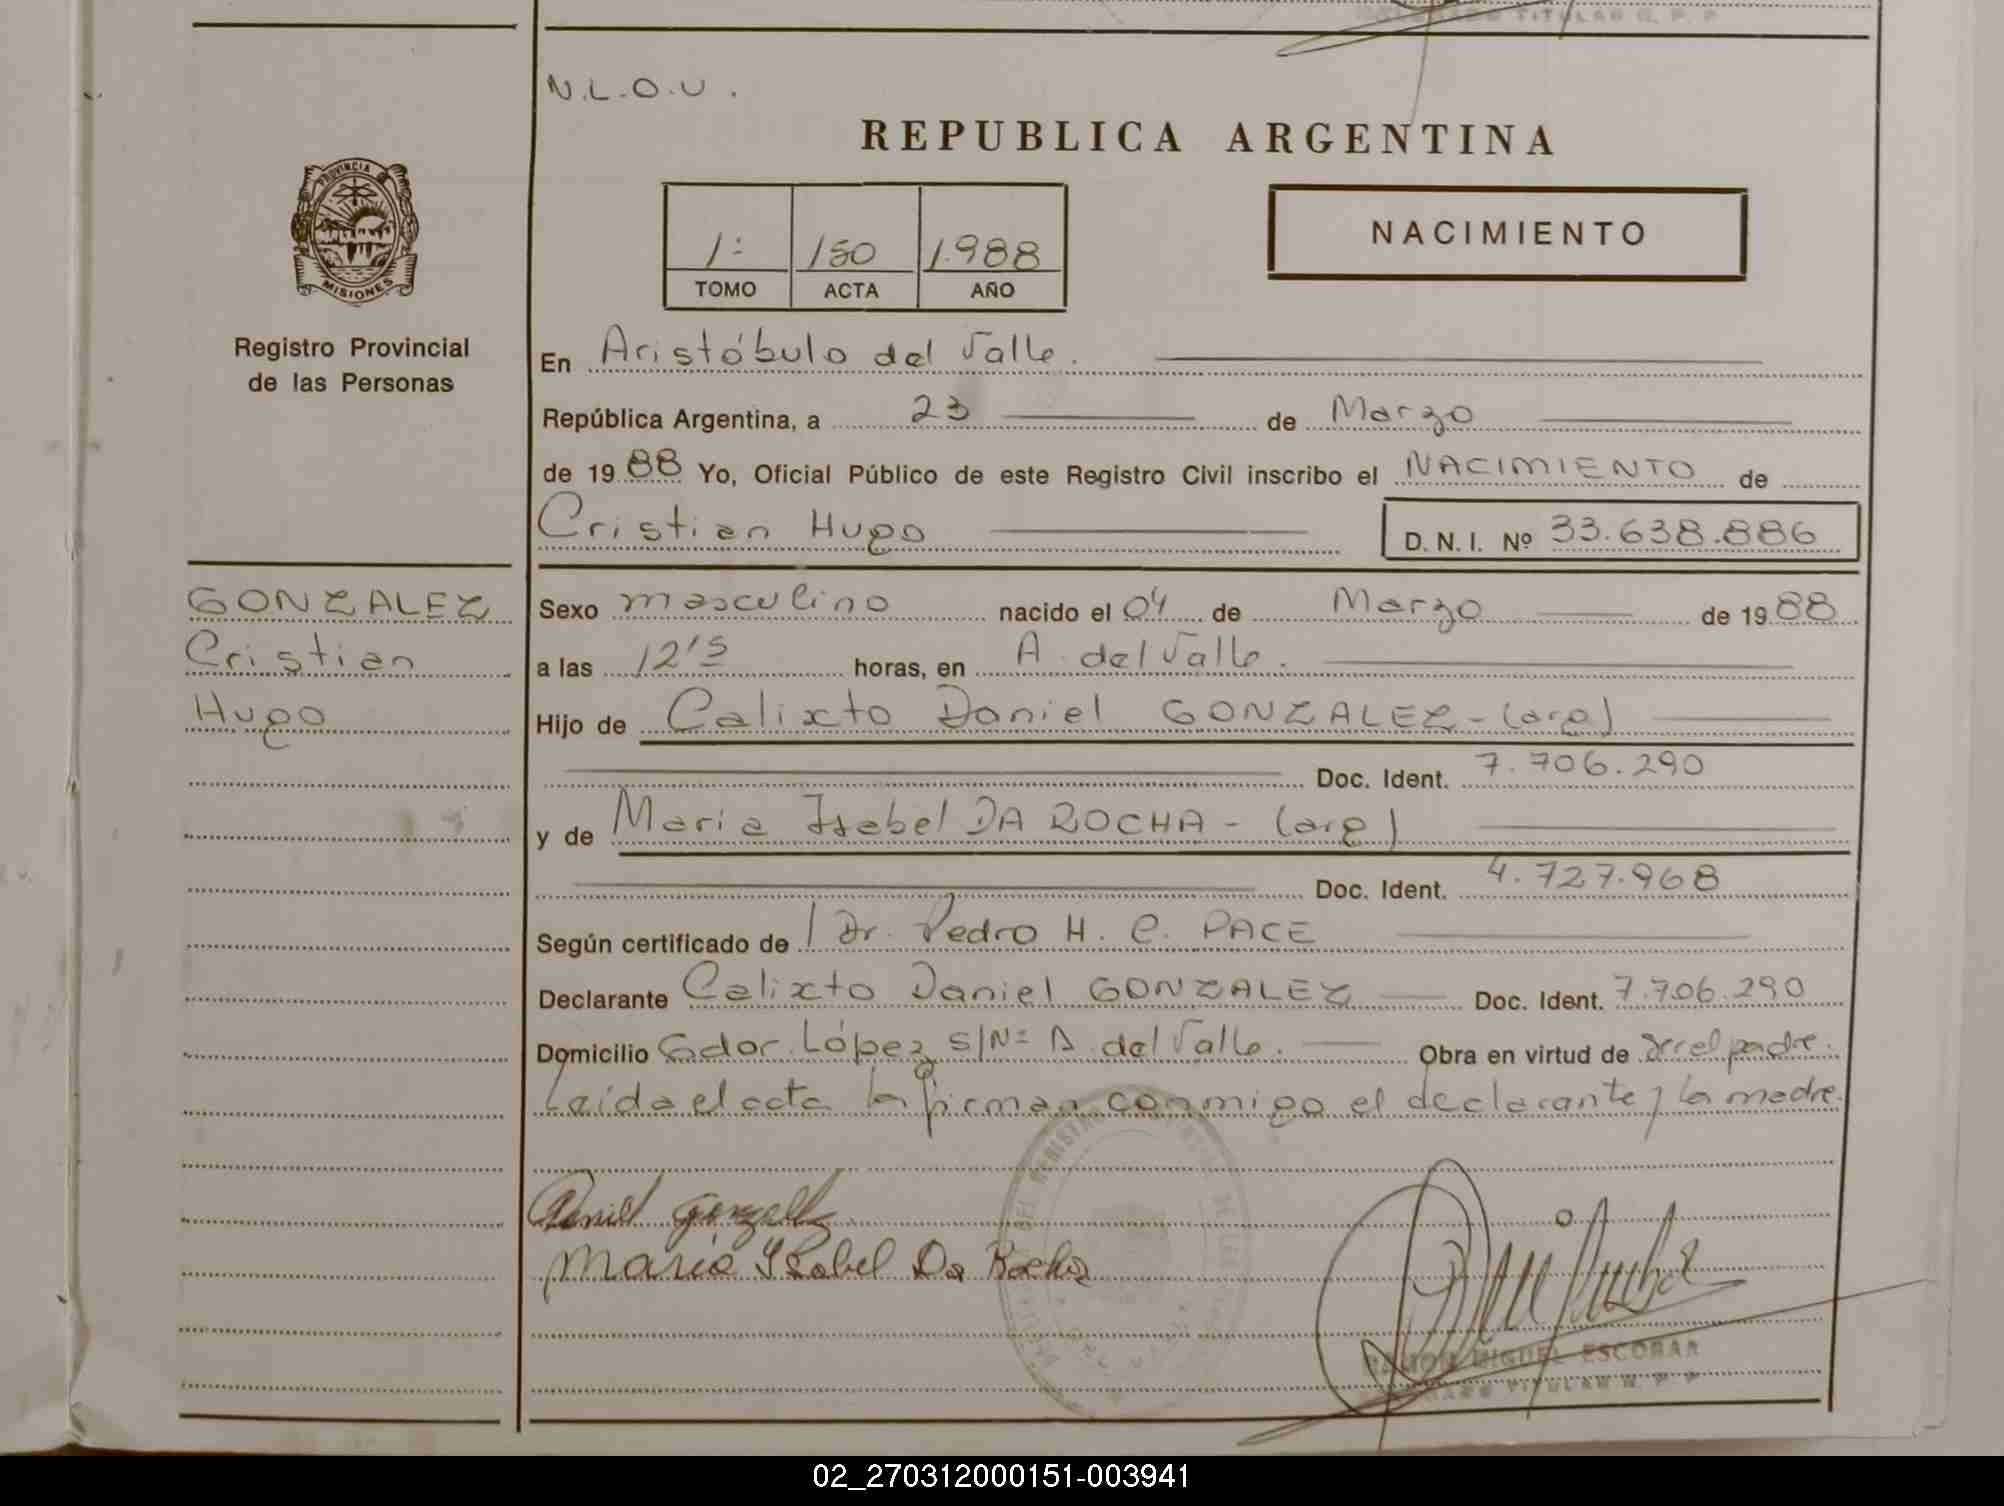 N.L.O.U.
REPUBLICA ARGENTINA
PROVINCIA
MISIONES
1: 150 1.988
TOMO ACTA AÑO
NACIMIENTO
Registro Provincial
de las Personas
En Aristóbulo del Valle.
República Argentina, a 23 de Marzo
de 1988 Yo, Oficial Público de este Registro Civil inscribo el NACIMIENTO de
Cristian Hugo D.N.I. Nº 33.638.886
GONZALEZ
Cristian
Hugo
Sexo masculino nacido el 04 de Marzo de 1988
a las 12'5 horas, en A. del Valle.
Hijo de Calixto Daniel GONZALEZ - (arg)
Doc. Ident. 7.706.290
y de Maria Isabel DA ROCHA - (arg)
Doc. Ident. 4.727.968
Según certificado de Dr. Pedro H. C. PACE
Declarante Calixto Daniel GONZALEZ Doc. Ident. 7.706.290
Domicilio Gdor. López S/Nº A. del Valle. Obra en virtud de ser el padre.
Leida el acta la firman conmigo el declarante y la madre.
Daniel Gonzalez
Maria Isabel Da Rocha
RAMON MIGUEL ESCOBAR
TITULAR R. P. P.
02_270312000151-003941